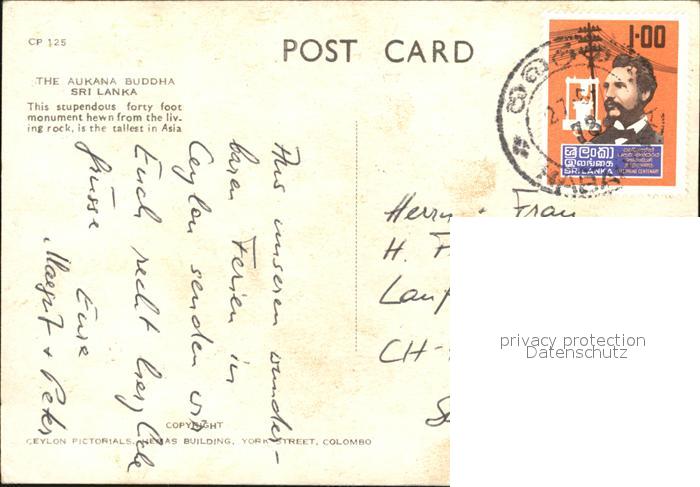 CP 125
POST CARD
THE AUKANA BUDDHA
SRI LANKA
This stupendous forty foot
monument hewn from the liv-
ing rock, is the tallest in Asia
1·00
ශ්‍රී ලංකා
இலங்கை
SRI LANKA
TELEPHONE CENTENARY
Aus unseren wunder-
baren Ferien in
Ceylon senden wir
Euch recht herzliche
Grüsse
Eure
Margrit + Peter
Herrn + Frau
H.
CH-
privacy protection
Datenschutz
COPYRIGHT
CEYLON PICTORIALS, HEMAS BUILDING, YORK STREET, COLOMBO